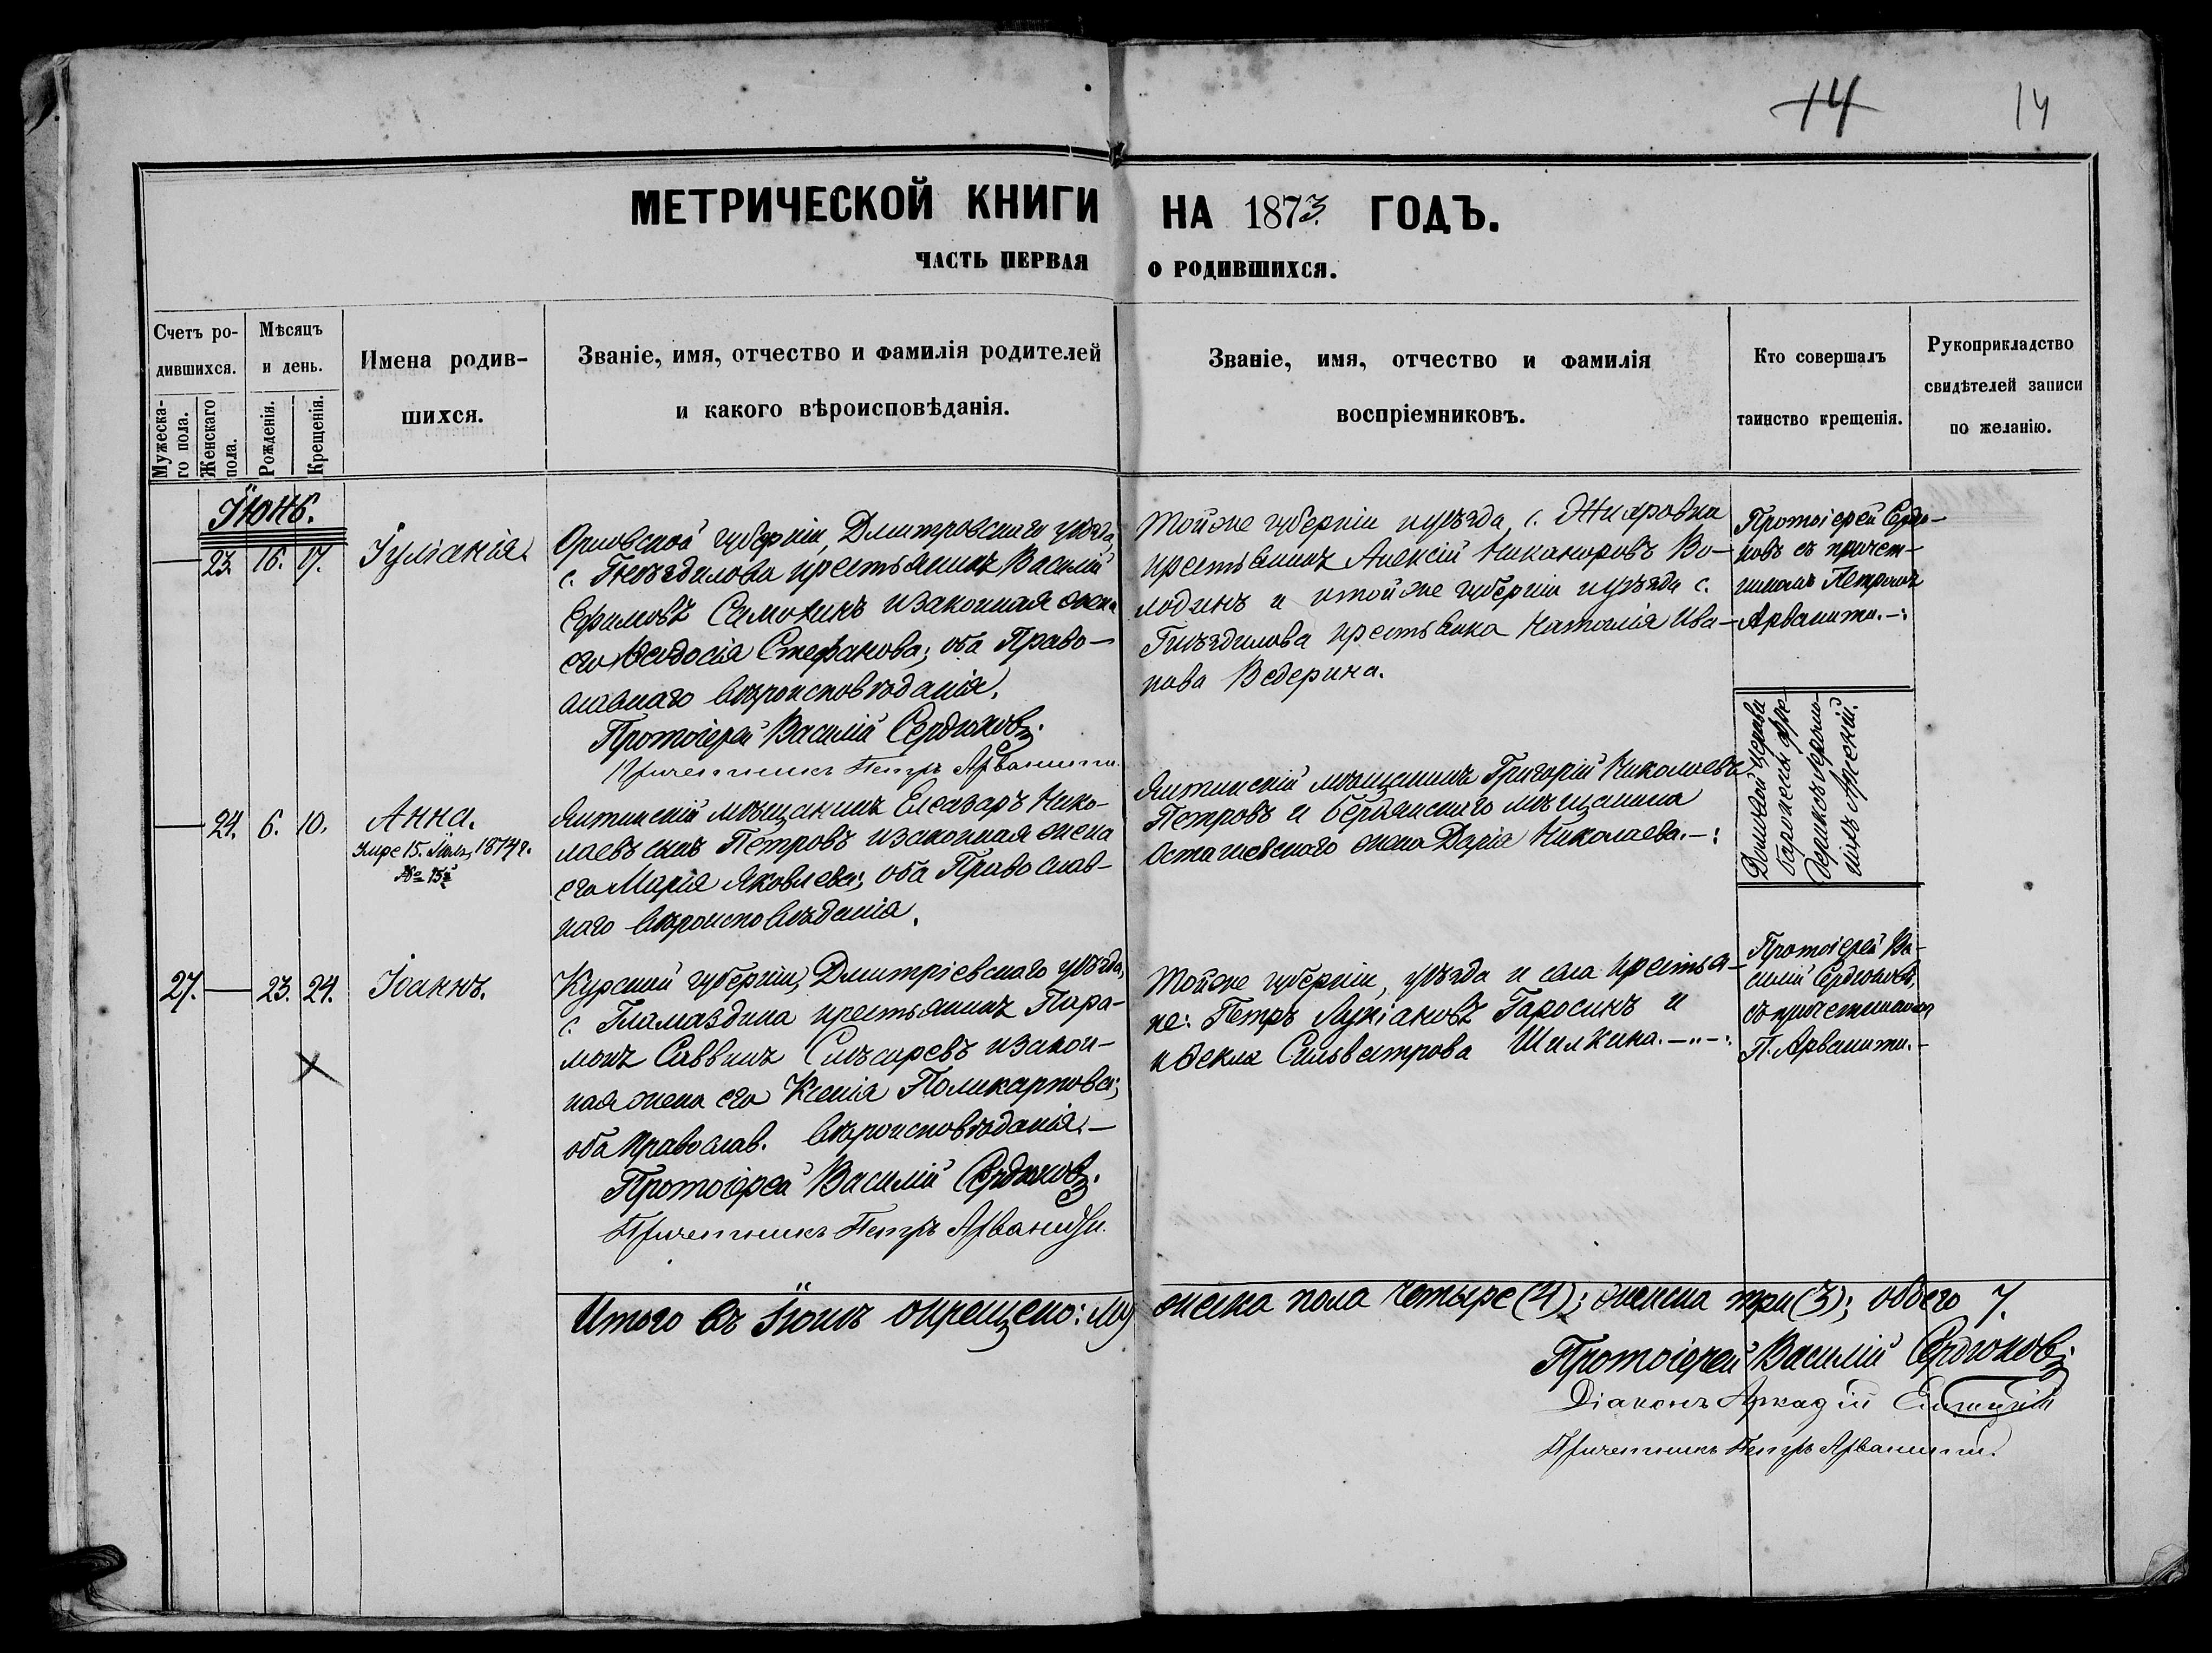 14 14
МЕТРИЧЕСКОЙ КНИГИ НА 1873 ГОДЪ.
ЧАСТЬ ПЕРВАЯ О РОДИВШИХСЯ.
Счетъ ро-
дившихся.
Мужеска-
го пола.
Женскаго
пола.
Мѣсяцъ
и день.
Рожденія.
Крещенія.
Имена родив-
шихся.
Званіе, имя, отчество и фамилія родителей
и какого вѣроисповѣданія.
Званіе, имя, отчество и фамилія
воспріемниковъ.
Кто совершалъ
таинство крещенія.
Рукоприкладство
свидѣтелей записи
по желанію.
Іюнь.
— 23. 16. 17.
Іуліанія.
Орловской губерніи, Дмитровскаго уѣзда,
с. Гнѣздилова крестьянинъ Василій
Ефимовъ Самохинъ и законная жена
его Ѳеодосія Стефанова; оба Право-
славнаго вѣроисповѣданія.
Протоіерей Василій Сердюковъ.
Причетникъ Петръ Арванити.
Тойже губерніи и уѣзда, с. Жировки
крестьянинъ Алексій Никаноровъ Во-
лодинъ и тойже губерніи и уѣзда с.
Гнѣздилова крестьянка Наталія Ива-
нова Ведерина.
Протоіерей Сердю-
ковъ съ причет-
никомъ Петромъ
Арванити.—:
— 24. 6. 10.
Анна.
Умре 15. Іюля, 1874 г.
№ 15й
Ялтинскій мѣщанинъ Елеазаръ Нико-
лаевъ сынъ Петровъ и законная жена
его Марія Яковлева; оба Православ-
наго вѣроисповѣданія.
Ялтинскій мѣщанинъ Григорій Николаевъ
Петровъ и Бердянскаго мѣщанина
Осташевскаго жена Дарія Николаева.—:
Домовой церкви
баронессы
Іеромо-
нахъ Арсеній.
27. — 23. 24.
Іоаннъ.
Курской губерніи, Дмитріевскаго уѣзда,
с. Гламаздина крестьянинъ Пара-
монъ Саввинъ Слѣсаревъ и закон-
ная жена его Ксенія Поликарпова;
оба Православ. вѣроисповѣданія.—
Протоіерей Василій Сердюковъ.
Причетникъ Петръ Арванити.
Тойже губерніи, уѣзда и села крестья-
не: Петръ Лукіановъ Гаросинъ и
и Ѳекла Сильвестрова Шилкина.—„—:
Протоіерей Ва-
силій Сердюковъ,
съ причетникомъ
П. Арванити.—
Итого въ Іюнѣ окрещено: муженска пола четыре (4); женска три (3); обоего 7.
Протоіерей Василій Сердюковъ.
Діаконъ Аркадій
Причетникъ Петръ Арванити.